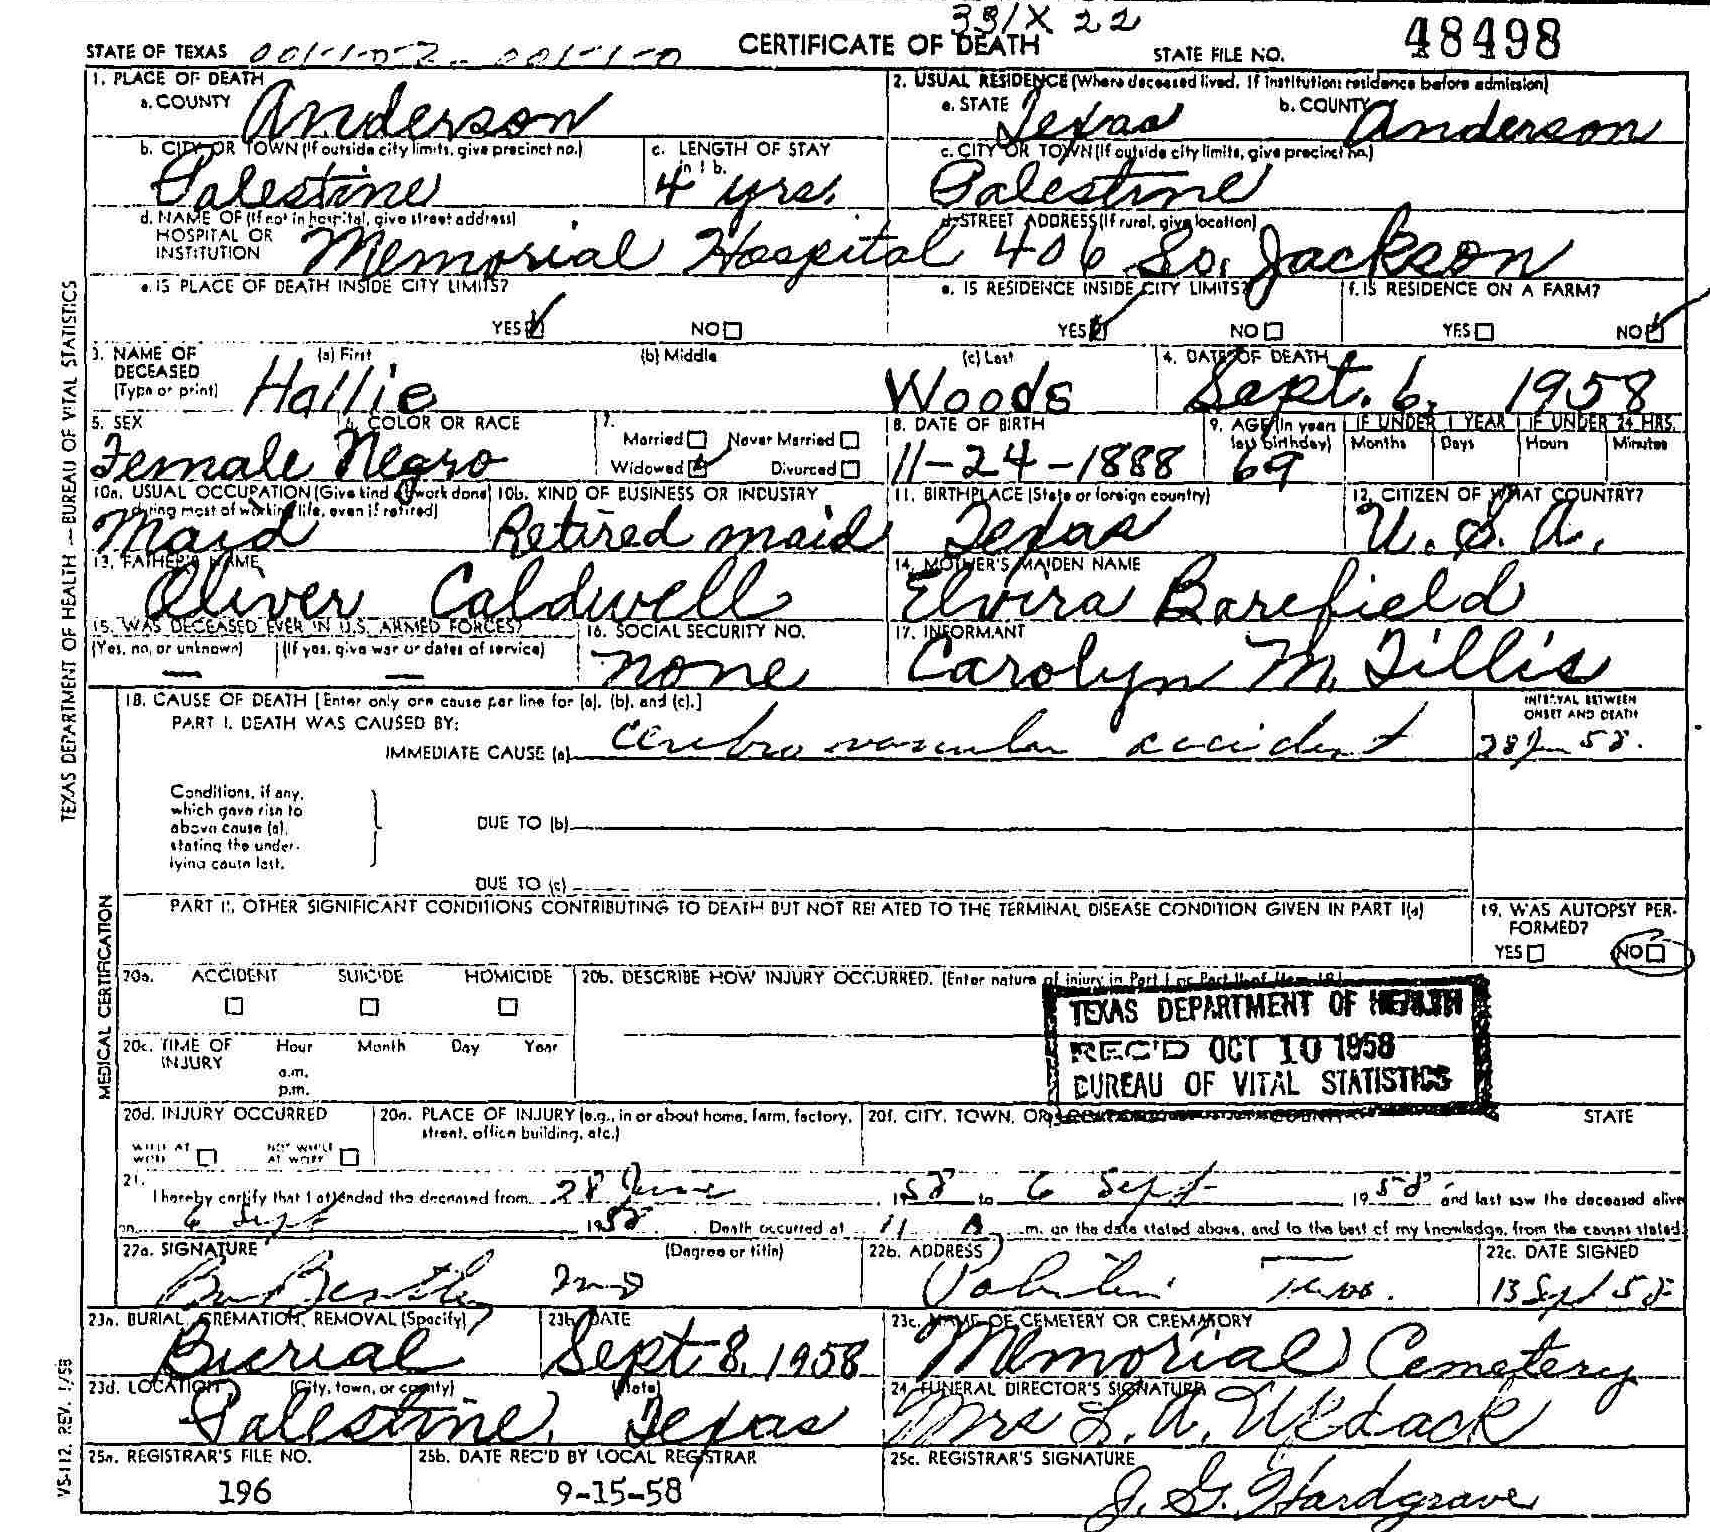 331X 22
STATE OF TEXAS 001-1-0-2- 001-1-0 CERTIFICATE OF DEATH STATE FILE NO. 48498
1. PLACE OF DEATH
a. COUNTY Anderson
2. USUAL RESIDENCE (Where deceased lived. If institution: residence before admission)
a. STATE Texas b. COUNTY Anderson
b. CITY OR TOWN (If outside city limits, give precinct no.) Palestine
c. LENGTH OF STAY in 1 b. 4 yrs.
c. CITY OR TOWN (If outside city limits, give precinct no.) Palestine
d. NAME OF (If not in hospital, give street address) HOSPITAL OR INSTITUTION Memorial Hospital
d. STREET ADDRESS (If rural, give location) 406 So. Jackson
e. IS PLACE OF DEATH INSIDE CITY LIMITS? YES NO
e. IS RESIDENCE INSIDE CITY LIMITS? YES NO
f. IS RESIDENCE ON A FARM? YES NO
3. NAME OF DECEASED (Type or print) (a) First Hallie (b) Middle (c) Last Woods
4. DATE OF DEATH Sept. 6, 1958
5. SEX Female
6. COLOR OR RACE Negro
7. Married Never Married Widowed Divorced
8. DATE OF BIRTH 11-24-1888
9. AGE (In years last birthday) 69 IF UNDER 1 YEAR Months Days IF UNDER 24 HRS. Hours Minutes
10a. USUAL OCCUPATION (Give kind of work done during most of working life, even if retired) Maid
10b. KIND OF BUSINESS OR INDUSTRY Retired maid
11. BIRTHPLACE (State or foreign country) Texas
12. CITIZEN OF WHAT COUNTRY? U. S. A.
13. FATHER'S NAME Oliver Caldwell
14. MOTHER'S MAIDEN NAME Elvira Barefield
15. WAS DECEASED EVER IN U.S. ARMED FORCES? (Yes, no, or unknown) — (If yes, give war or dates of service) —
16. SOCIAL SECURITY NO. none
17. INFORMANT Carolyn M. Tillis
18. CAUSE OF DEATH [Enter only one cause per line for (a), (b), and (c).]
PART I. DEATH WAS CAUSED BY:
IMMEDIATE CAUSE (a) cerebro vascular accident
INTERVAL BETWEEN ONSET AND DEATH 28 Jun 58.
Conditions, if any, which gave rise to above cause (a), stating the underlying cause last.
DUE TO (b)
DUE TO (c)
PART II. OTHER SIGNIFICANT CONDITIONS CONTRIBUTING TO DEATH BUT NOT RELATED TO THE TERMINAL DISEASE CONDITION GIVEN IN PART I(a)
19. WAS AUTOPSY PERFORMED? YES NO
20a. ACCIDENT SUICIDE HOMICIDE
20b. DESCRIBE HOW INJURY OCCURRED. (Enter nature of injury in Part I or Part II of Item 18)
TEXAS DEPARTMENT OF HEALTH
REC'D OCT 10 1958
BUREAU OF VITAL STATISTICS
20c. TIME OF INJURY Hour Month Day Year
a.m.
p.m.
20d. INJURY OCCURRED
WHILE AT WORK NOT WHILE AT WORK
20e. PLACE OF INJURY (e.g., in or about home, farm, factory, street, office building, etc.)
20f. CITY, TOWN, OR LOCATION COUNTY STATE
21. I hereby certify that I attended the deceased from 28 June 1958 to 6 Sept 1958 and last saw the deceased alive
on 6 Sept 1958. Death occurred at 11 A m. on the date stated above, and to the best of my knowledge, from the causes stated.
22a. SIGNATURE (Degree or title) MD
22b. ADDRESS Palestine Texas.
22c. DATE SIGNED 13 Sept 58
23a. BURIAL, CREMATION, REMOVAL (Specify) Burial
23b. DATE Sept 8, 1958
23c. NAME OF CEMETERY OR CREMATORY Memorial Cemetery
23d. LOCATION (City, town, or county) (State) Palestine, Texas
24. FUNERAL DIRECTOR'S SIGNATURE Mrs L. A.
25a. REGISTRAR'S FILE NO. 196
25b. DATE REC'D BY LOCAL REGISTRAR 9-15-58
25c. REGISTRAR'S SIGNATURE J. G. Hardgrave
TEXAS DEPARTMENT OF HEALTH — BUREAU OF VITAL STATISTICS
MEDICAL CERTIFICATION
VS-112 REV. 1/58